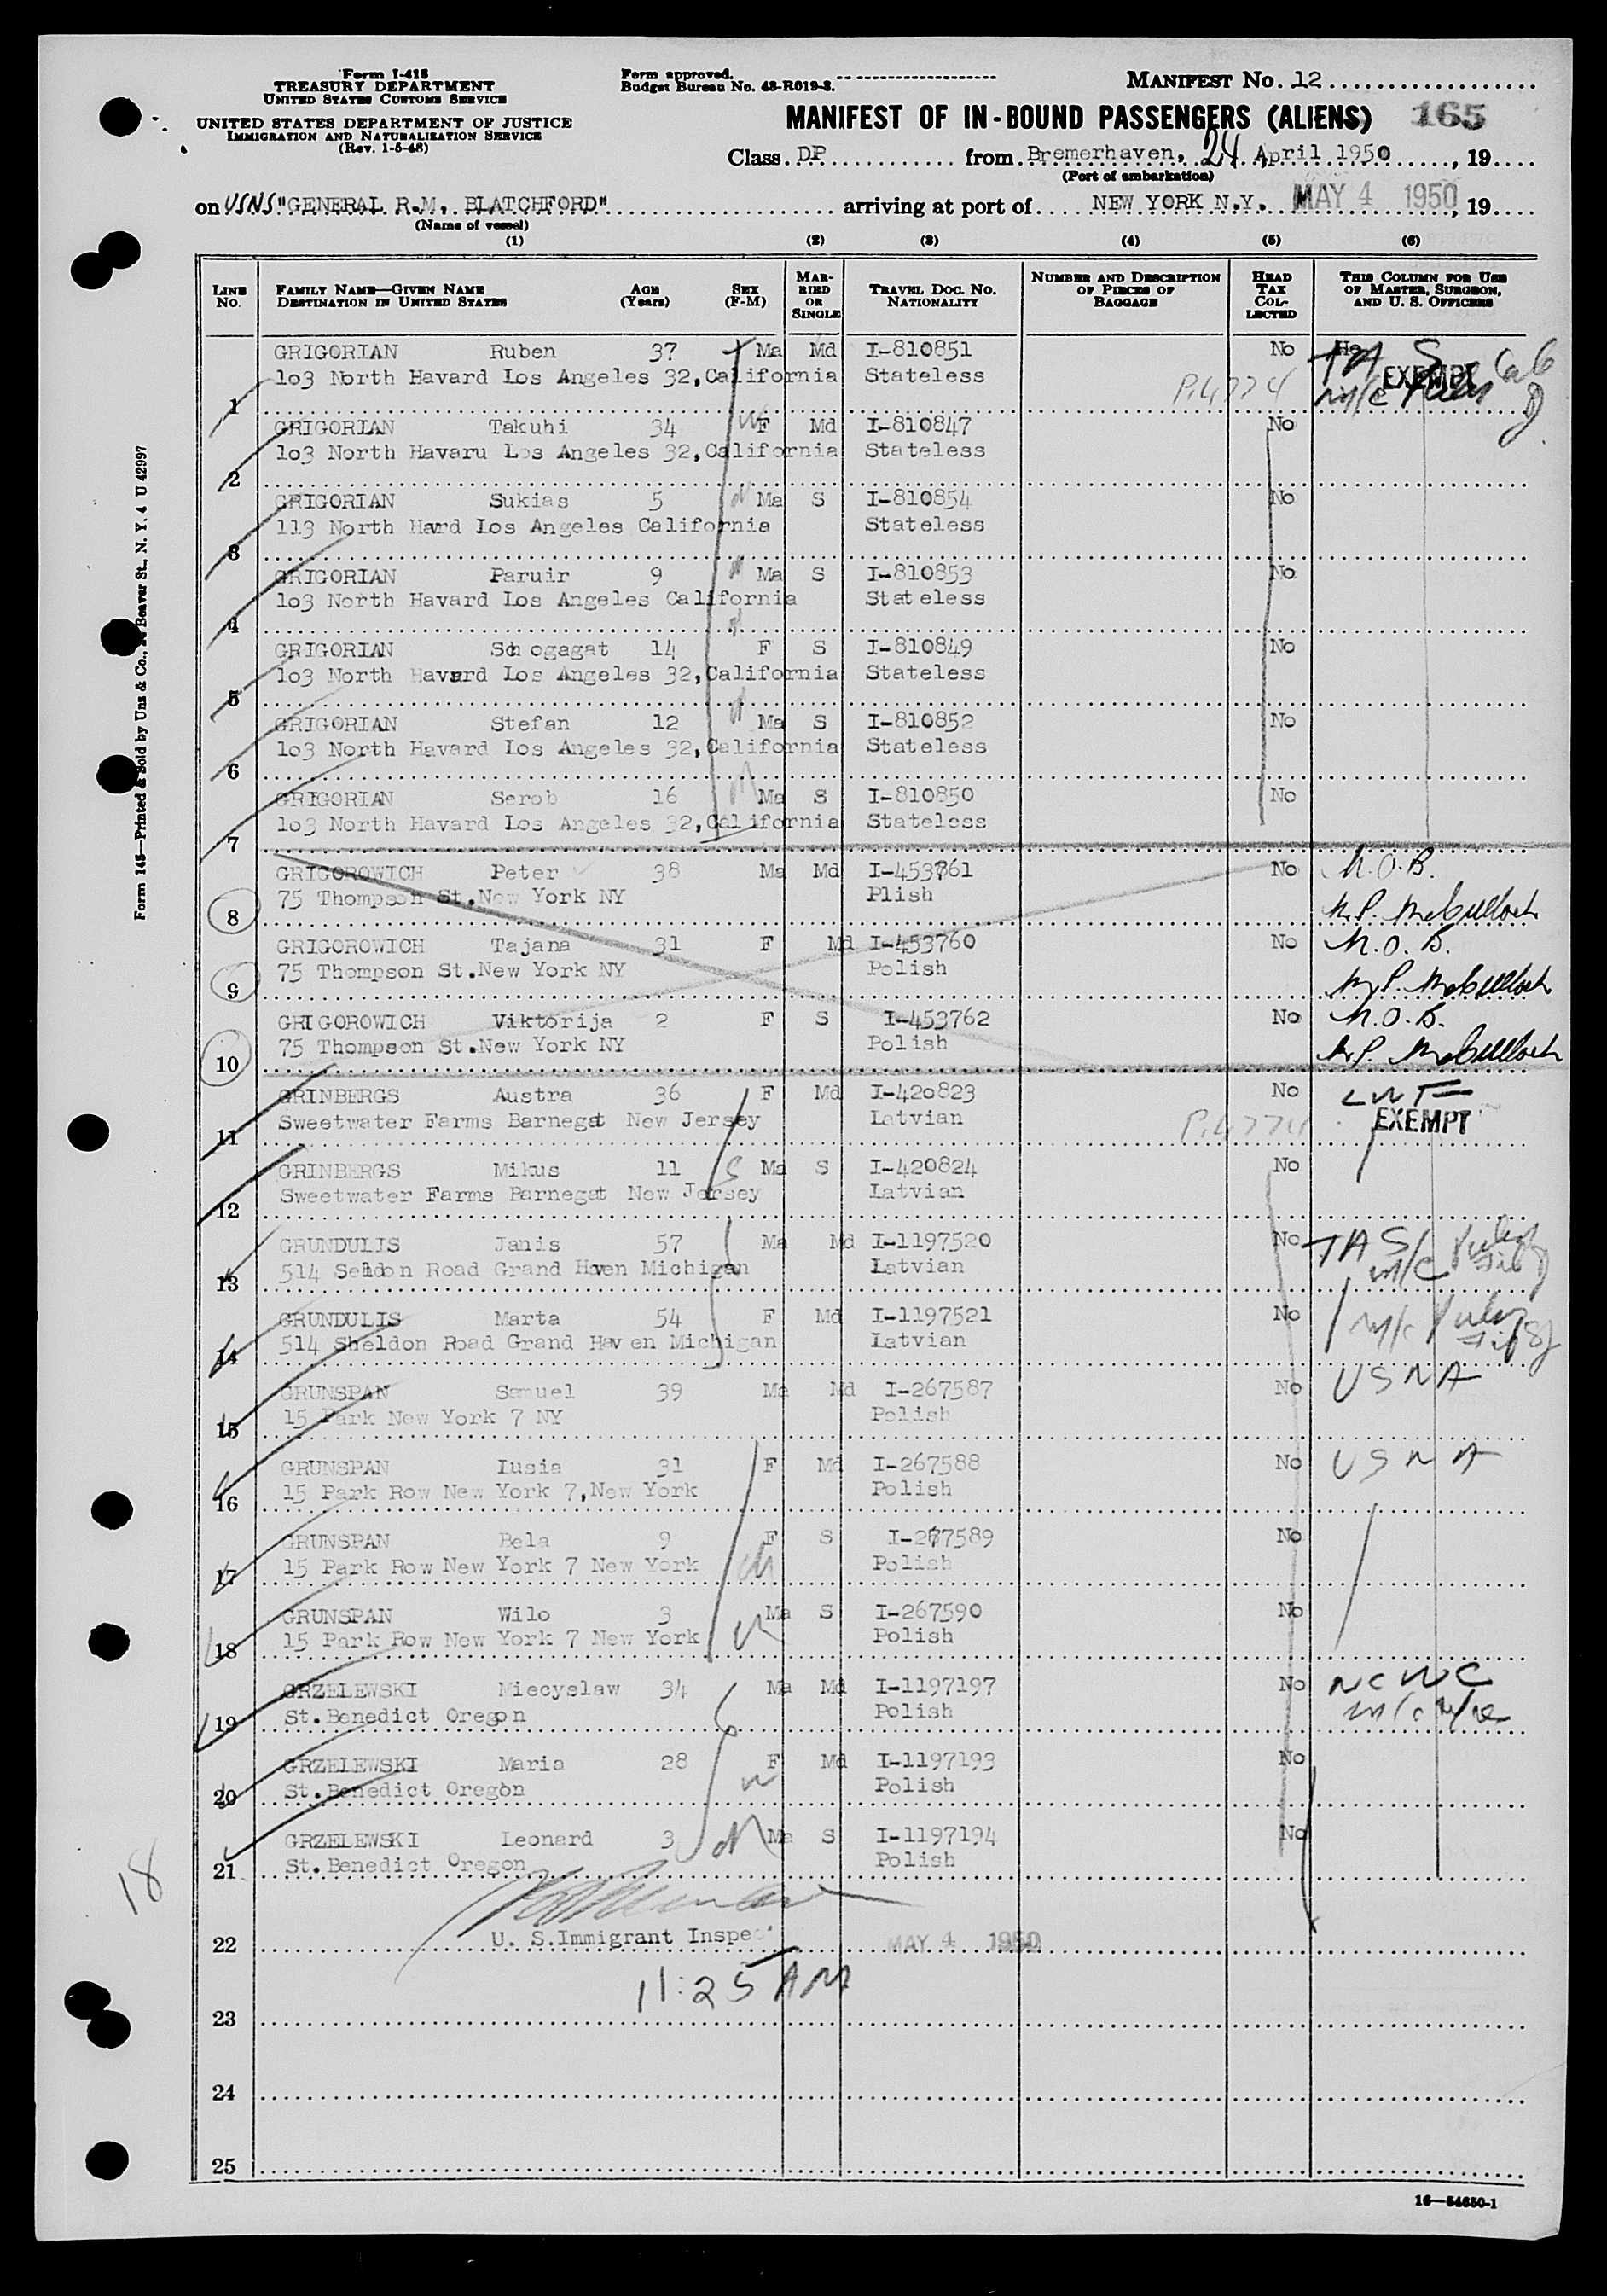 Form I-415
TREASURY DEPARTMENT
UNITED STATES CUSTOMS SERVICE
UNITED STATES DEPARTMENT OF JUSTICE
IMMIGRATION AND NATURALIZATION SERVICE
(Rev. 1-5-48)
Form approved.
Budget Bureau No. 43-R019-3.
MANIFEST NO. 12
MANIFEST OF IN-BOUND PASSENGERS (ALIENS) 165
Class DP from Bremerhaven, 24 April 1950, 19
(Port of embarkation)
on USNS "GENERAL R.M. BLATCHFORD" arriving at port of NEW YORK N.Y. MAY 4 1950, 19
(Name of vessel)
(1) (2) (3) (4) (5) (6)
LINE NO. FAMILY NAME—GIVEN NAME DESTINATION IN UNITED STATES AGE (Years) SEX (F-M) MARRIED OR SINGLE TRAVEL DOC. NO. NATIONALITY NUMBER AND DESCRIPTION OF PIECES OF BAGGAGE HEAD TAX COLLECTED THIS COLUMN FOR USE OF MASTER, SURGEON, AND U. S. OFFICERS
GRIGORIAN Ruben 37 Ma Md I-810851 No TA S
1 lo3 North Havard Los Angeles 32,California Stateless P.4774 EXEMPT
GRIGORIAN Takuhi 34 F Md I-810847 No
2 lo3 North Havaru Los Angeles 32,California Stateless
GRIGORIAN Sukias 5 Ma S I-810854 No
3 113 North Hard Los Angeles California Stateless
GRIGORIAN Paruir 9 Ma S I-810853 No
4 lo3 North Havard Los Angeles California Stateless
GRIGORIAN Schogagat 14 F S I-810849 No
5 lo3 North Havard Los Angeles 32,California Stateless
GRIGORIAN Stefan 12 Ma S I-810852 No
6 lo3 North Havard Los Angeles 32,California Stateless
GRIGORIAN Serob 16 Ma S I-810850 No
7 lo3 North Havard Los Angeles 32,California Stateless
GRIGOROWICH Peter 38 Ma Md I-453761 No N.O.B.
8 75 Thompson St.New York NY Plish M.P. McCulloch
GRIGOROWICH Tajana 31 F Md I-453760 No N.O.B.
9 75 Thompson St.New York NY Polish M.P. McCulloch
GRIGOROWICH Viktorija 2 F S I-453762 No N.O.B.
10 75 Thompson St.New York NY Polish M.P. McCulloch
GRINBERGS Austra 36 F Md I-420823 No LWF
11 Sweetwater Farms Barnegat New Jersey Latvian P.4774 EXEMPT
GRINBERGS Mikus 11 Ma S I-420824 No
12 Sweetwater Farms Barnegat New Jersey Latvian
GRUNDULIS Janis 57 Ma Md I-1197520 No TAS
13 514 Seldon Road Grand Haven Michigan Latvian m/c
GRUNDULIS Marta 54 F Md I-1197521 No m/c
14 514 Sheldon Road Grand Haven Michigan Latvian
GRUNSPAN Samuel 39 Ma Md I-267587 No USNA
15 15 Park New York 7 NY Polish
GRUNSPAN Lusia 31 F Md I-267588 No USNA
16 15 Park Row New York 7,New York Polish
GRUNSPAN Bela 9 F S I-267589 No
17 15 Park Row New York 7 New York Polish
GRUNSPAN Wilo 3 Ma S I-267590 No
18 15 Park Row New York 7 New York Polish
GRZELEWSKI Miecyslaw 34 Ma Md I-1197197 No NCWC
19 St.Benedict Oregon Polish
GRZELEWSKI Maria 28 F Md I-1197193 No
20 St.Benedict Oregon Polish
GRZELEWSKI Leonard 3 Ma S I-1197194 No
21 St.Benedict Oregon Polish
18
22 U. S.Immigrant Inspec MAY 4 1950
11:25 AM
23
24
25
16—54650-1
Form 145—Printed & Sold by Unz & Co., Beaver St., N. Y. 4 U 42997